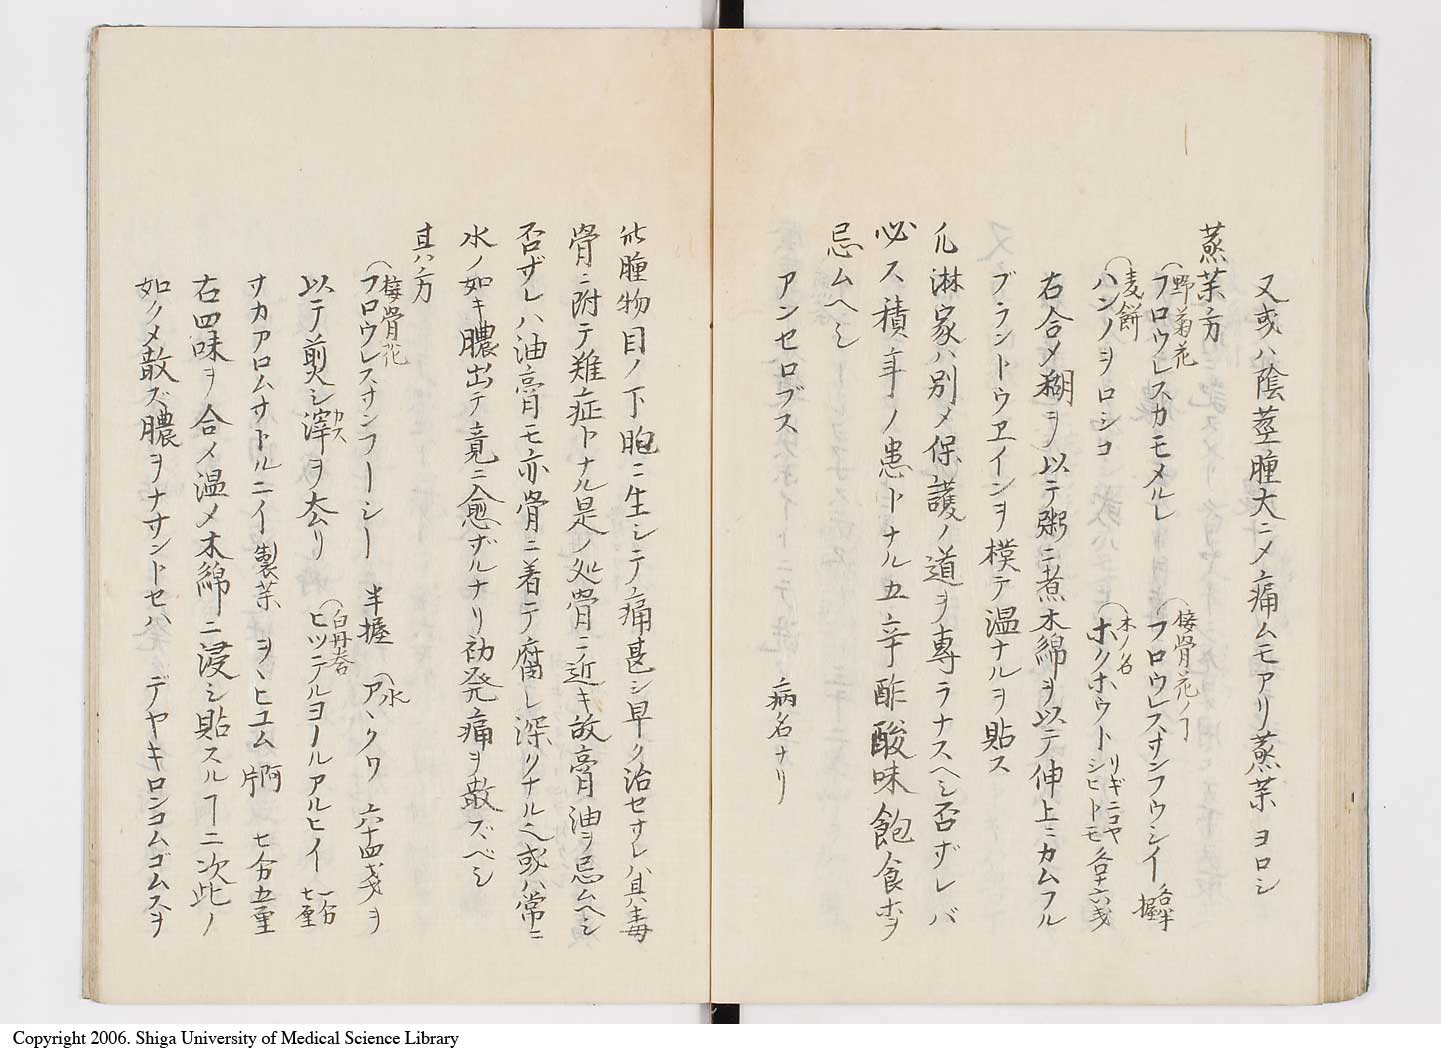 又或ハ陰莖腫大ニメ痛ムモアリ蒸茱ヨロシ
蒸茱方
野菊花
フロウレスカモメルレ
接骨花ノヿ
フロウレスサンフウシイ 各半握
麦餅
ハンノヲロシコ
木ノ名
ホクホウト
リギニコヤ
シヒトモ 各十六戔
右合メ糊ヲ以テ粥ニ煮木綿ヲ以テ伸上ニカムフル
ブラントウヱインヲ模テ温ナルヲ貼ス
凡淋家ハ別メ保護ノ道ヲ專ラナスヘシ否ザレバ
必ス積年ノ患トナル五辛酢酸味飽食ホヲ
忌ムヘシ
アンセロブス 病名ナリ
此腫物目ノ下胞ニ生シテ痛甚シ早ク治セサレハ其毒
骨ニ附テ難症トナル是ノ処骨ニ近キ故膏油ヲ忌ムヘシ
否ザレハ油膏モ亦骨ニ着テ腐レ深クナルヘシ或ハ常ニ
水ノ如キ膿出テ竟ニ愈ザルナリ初発痛ヲ散ズベシ
其方
接骨花
フロウレスサンフーシー 半握
水
アヽクワ 六十四戔ヲ
以テ煎シ滓ヲ去リ
カス
白丹
ヒツテルヨールアルヒイ 一分七厘
サカアロムサトルニイ 製茱 ヲヽヒユム 阿片 七分五厘
右四味ヲ合メ温メ木綿ニ浸シ貼スルヿ二次此ノ
如クメ散ズ膿ヲナサントセハ デヤキロンコムゴムスヲ
Copyright 2006. Shiga University of Medical Science Library